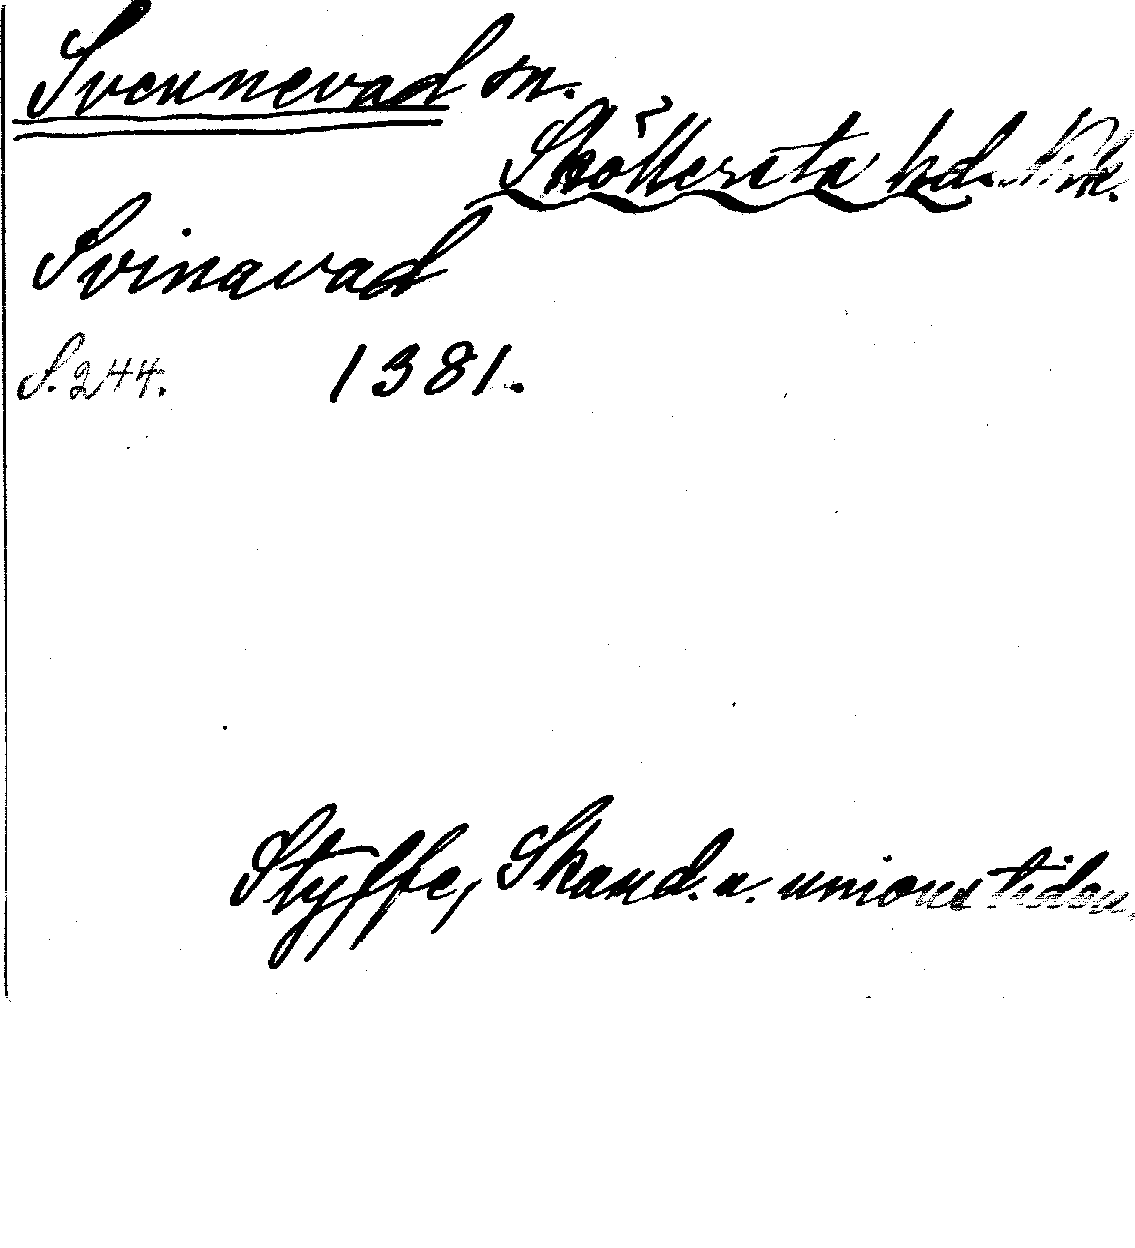 Svennevad sn.
Sköllersta hd. Nke.
Svinavad
S. 244. 1381.
Styffe, Skand. u. unionstiden.